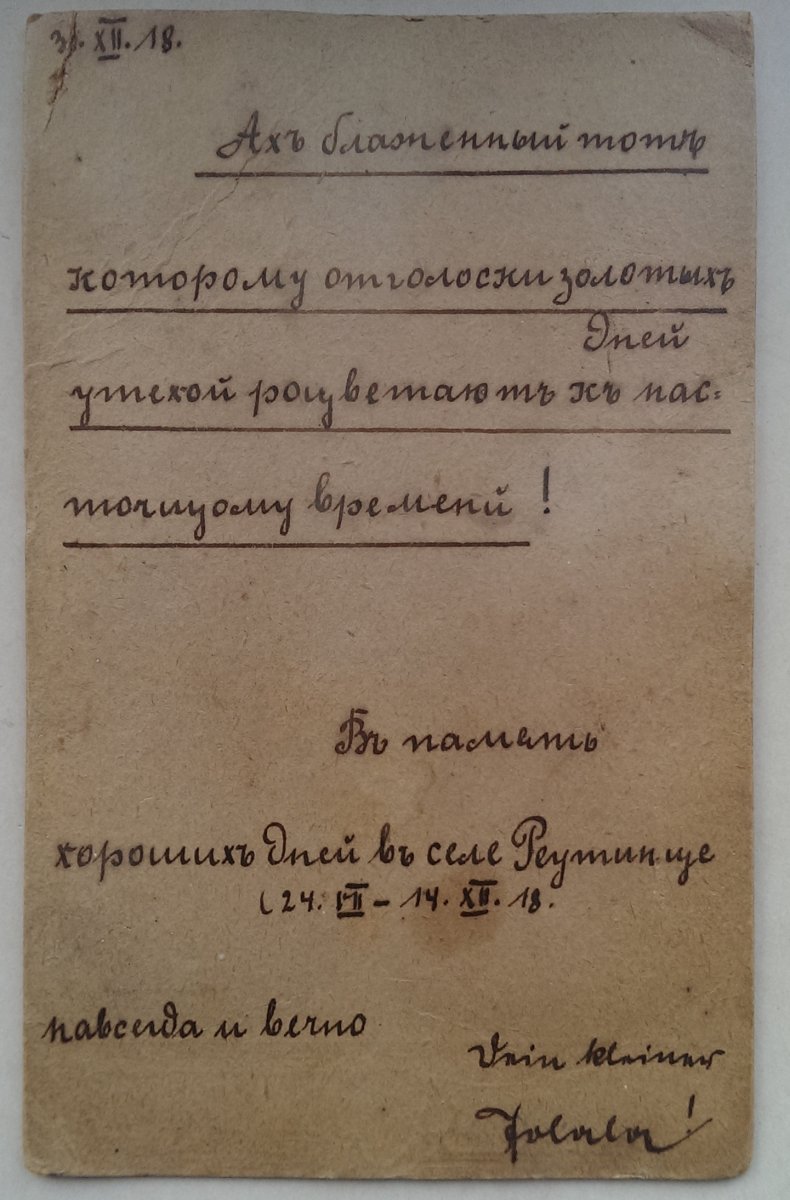 31. XII. 18.
Ахъ блаженный тотъ
которому отголоски золотыхъ
Дней
утехой роцветаютъ къ нас=
точщому времени !
Въ паметь
хорошихъ Дней въ селе Реутинще
(24. VII – 14. XII. 18.
навсегда и вечно
Dein kleiner